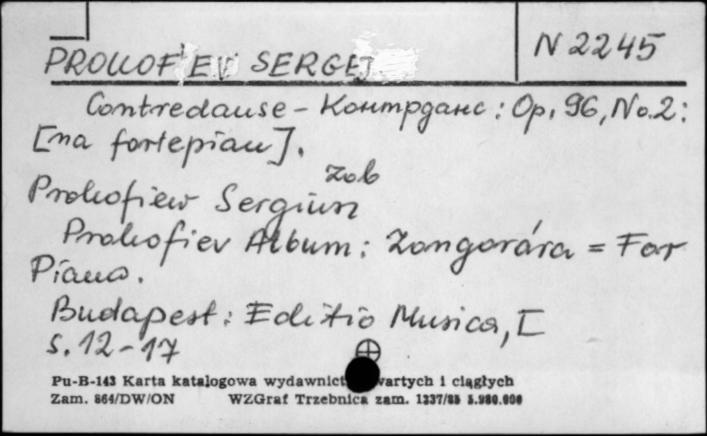 N 2245
PROKOF'EV SERGEJ
Contredanse - Контрданс : Op. 96, No. 2 :
[na fortepian].
zob
Prokofiew Sergiusz
Prokofiev Album : Zongorára = For
Piano.
Budapest : Editio Musica, [
s. 12-17
Pu-B-143 Karta katalogowa wydawnict wartych i ciągłych
Zam. 864/DW/ON WZGraf Trzebnica zam. 1337/85 5.980.000